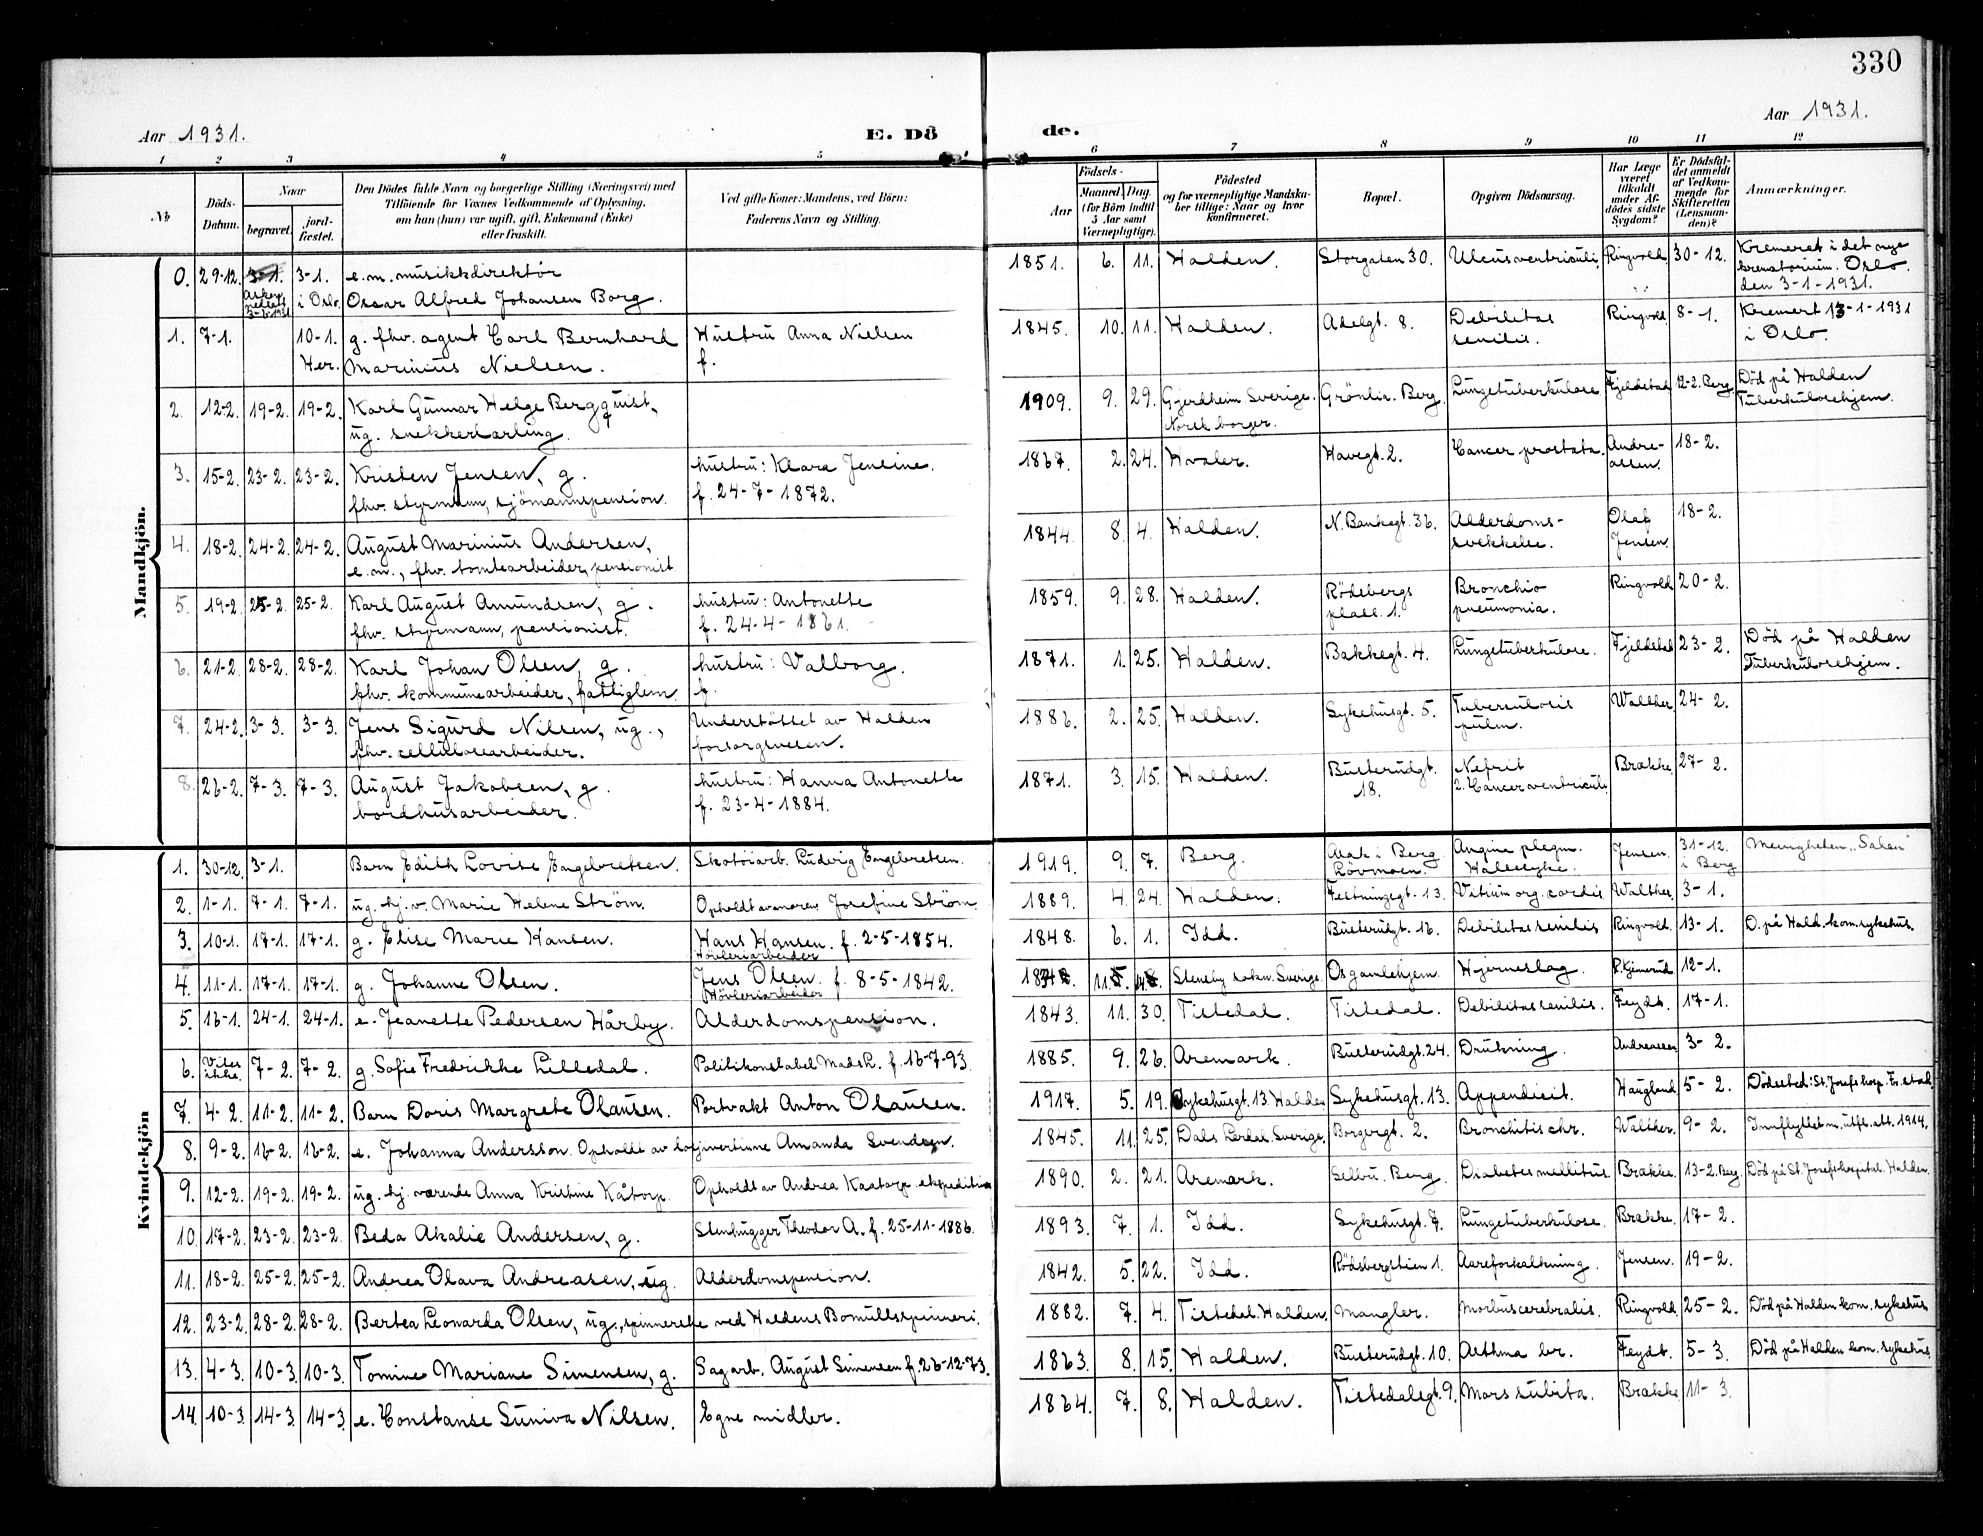 330
Aar 1931.
E. Dö
de.
Aar 1931.
1 2 3 4 5 6 7 8 9 10 11 12
№
Döds-Datum.
Naar
begravet.
jord-fæstet.
Den Dödes fulde Navn og borgerlige Stilling (Næringsvei) med
Tilföiende for Voxnes Vedkommende af Oplysning,
om han (hun) var ugift, gift, Enkemand (Enke)
eller fraskilt.
Ved gifte Koner: Mandens, ved Börn:
Faderens Navn og Stilling.
Födsels-
Aar
Maaned
Dag
(for Börn indtil
5 Aar samt
Værnepligtige).
Födested
og for værnepligtige Mandska-
ber tillige: Naar og hvor
konfirmeret.
Bopæl.
Opgiven Dödsaarsag.
Har Læge
været
tilkaldt
under Af-
dödes sidste
Sygdom?
Er Dödsfal-
det anmeldt
af Vedkom-
mende for
Skifteretten
(Lensman-
den)?
Anmærkninger.
Mandkjön.
0. 29-12. 3-1. 3-1. e.m. musikkdirektör 1851. 6. 11. Halden. Storgaten 30. Ulcus ventriculi. Ringvold 30-12. Kremeret i det nye
nedsatt 3-6-1931 i Oslo. Oscar Alfred Johansen Borg. krematorium. Oslo.
den 3-1-1931.
1. 7-1. 10-1. g. fhv. agent Carl Bernhard Hustru Anna Nielsen 1845. 10. 11. Halden. Adelgt. 8. Debilitas Ringvold 8-1. Kremert 13-1-1931
Her. Marinius Nielsen. f. senilis. i Oslo.
2. 12-2. 19-2. 19-2. Karl Gunnar Helge Bergquist, 1909. 9. 29. Gjerdheim Sverige. Grönlia. Berg. Lungetuberkulose Fjeldstad 12-2. Berg. Död på Halden
ug. snekkerlærling. Norsk borger. Tuberkulosehjem.
3. 15-2. 23-2. 23-2. Kristen Jensen, g. hustru: Klara Jensine. 1867. 2. 24. Hvaler. Havegt. 2. Cancer prostata. Andre- 18-2.
fhv. styrmann, sjömannspension. f. 24-7-1872. assen.
4. 18-2. 24-2. 24-2. August Marinius Andersen, 1844. 8. 4. Halden. N. Bankegt. 36. Alderdoms- Olaf 18-2.
e.m., fhv. tomtearbeider, pensionist. svekkelse. Jensen.
5. 19-2. 25-2. 25-2. Karl August Amundsen, g. hustru: Antonette 1859. 9. 28. Halden. Rödsbergs Bronchio Ringvold 20-2.
fhv. styrmann, pensionist. f. 24-4-1861. plass. 1. pneumonia.
6. 21-2. 28-2. 28-2. Karl Johan Olsen, g. hustru: Valborg. 1871. 1. 25. Halden. Bakkegt. 4. Lungetuberkulose. Fjeldstad 23-2. Död på Halden
fhv. kommunearbeider, fattiglem. f. Tuberkulosehjem.
7. 24-2. 3-3. 3-3. Jens Sigurd Nilsen, ug., Understöttet av Halden 1886. 2. 25. Halden. Sykehusgt. 5. Tuberculosis Walther 24-2.
fhv. cellulosearbeider. forsorgsvesen. pulm.
8. 26-2. 7-3. 7-3. August Jakobsen, g. hustru: Hanna Antonette 1871. 3. 15. Halden. Busterudgt. Nefrit Brække 27-2.
bordhusarbeider. f. 23-4-1884. 18. 2. Cancer ventriculi.
Kvindekjön
1. 30-12. 3-1. Barn Edith Lovise Engebretsen. Skotöiarb. Ludvig Engebretsen. 1919. 9. 7. Berg. Asak i Berg Angina plegm. Jensen. 31-12. Menigheten "Salen"
Lövmoen. Halsesyke. i Berg
2. 1-1. 7-1. 7-1. ug. hj.v. Marie Helene Ström. Opholdt av moren Josefine Ström. 1889. 4. 24. Halden. Festningsgt. 13. Vitium org. cordis Walther 3-1.
3. 10-1. 17-1. 17-1. g. Elise Marie Hansen. Hans Hansen. f. 2-5-1854. 1848. 6. 1. Idd. Busterudgt. 16. Debilitas senilis Ringvold. 13-1. D. på Hald. kom. sykehus.
Hövleriarbeider
4. 11-1. 17-1. 17-1. g. Johanne Olsen. Jens Olsen. f. 8-5-1842. 11. Steneby sokn. Sverige. Os gamlehjem. Hjerneslag. 12-1.
Hövleriarbeider
5. 16-1. 24-1. 24-1. e. Jeanette Pedersen Hårby. Alderdomspension. 1843. 11. 30. Tistedal. Tistedal. Debilitas senilis. Feydt. 17-1.
6. Vites ikke. 7-2. 7-2. g. Sofie Fredrikke Lilledal. Politikonstabel Mads L. f. 16-7-93. 1885. 9. 26. Aremark. Busterudgt. 24. Drukning. Andreassen 3-2.
7. 4-2. 11-2. 11-2. Barn Doris Margrete Olausen. Portvakt Anton Olausen. 1917. 5. 19. Sykehusgt. 13 Halden Sykehusgt. 13. Appendicit. Haugland 5-2. Dödssted: St. Josefs hosp. Fr.stad.
8. 9-2. 16-2. 16-2. e. Johanna Andersson. Opholdt av losjivertinne Amanda Svendsen. 1845. 11. 25. Dals Sverige. Borgergt. 2. Bronchitis chr. Walther. 9-2. Innflyttet m. utfl. att. 1914.
9. 12-2. 19-2. 19-2. ug. hj. værende Anna Kristine Kåtorp. Opholdt av Andrea Kaatorp ekspeditrise 1890. 2. 21. Aremark. Selbu. Berg. Diabetes mellitus. Brække. 13-2. Berg. Död på St. Josefs hospital. Halden.
10. 17-2. 23-2. 23-2. Beda Akalie Andersen, g. Stenhugger Theodor A. f. 25-11-1886. 1893. 7. 1. Idd. Sykehusgt. 7. Lungetuberkulose. Brække. 17-2.
11. 18-2. 25-2. 25-2. Andrea Olava Andreasen, ug. Alderdomspension. 1842. 5. 22. Idd. Rödsbergstien 1. Aareforkalkning. Jensen. 19-2.
12. 23-2. 28-2. 28-2. Bertea Leonarda Olsen, ug., spinnerske ved Haldens Bomullsspinneri. 1882. 7. 4. Tistedal. Halden. Mangler. Morbus cerebralis. Ringvold 25-2. Död på Halden kom. sykehus
13. 4-3. 10-3. 10-3. Tomine Mariane Simensen, g. Sagarb. August Simensen f. 26-12-73. 1863. 8. 15. Halden. Busterudgt. 10. Asthma br. Feydt. 5-3. Död på Halden kom. sykehus.
14. 10-3. 14-3. 14-3. e. Constanse Suniva Nilsen. Egne midler. 1864. 7. 8. Halden. Tistedalsgt. 9. Mors subita. Brække 11-3.